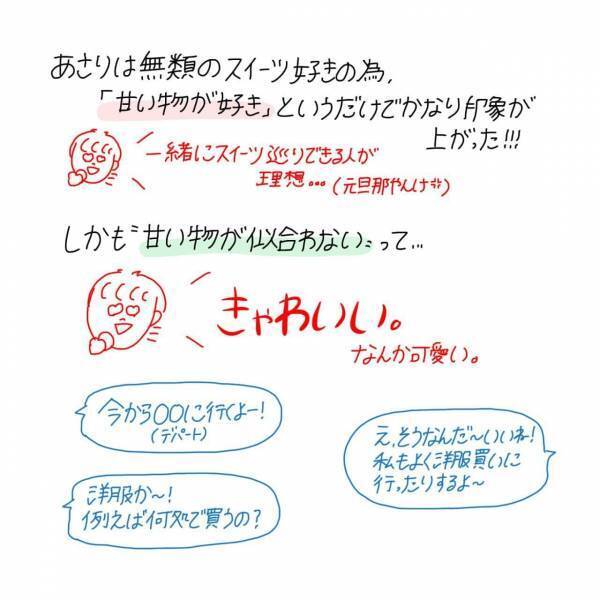 あさりは無類のスイーツ好きの為、
「甘い物が好き」というだけでかなり印象が
上がった!!!
一緒にスイーツ巡りできる人が
理想…(元旦那やんけ💢)
しかも〝甘い物が似合わない〟って…
きゃわいい。
なんか可愛い。
今から〇〇に行くよー!
(デパート)
え、そうなんだ〜いいね!
私もよく洋服買いに
行ったりするよ〜
洋服か〜!
例えば何処で買うの?